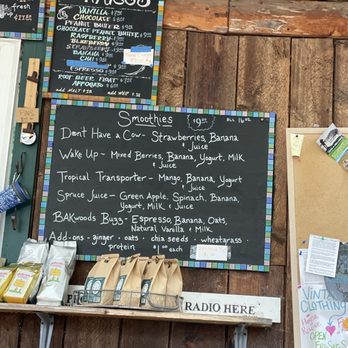 fresh
VANILLA
CHOCOLATE
PEANUT BUTTER
CHOCOLATE PEANUT BUTTER
RASPBERRY
BLUEBERRY
BANANA
CHAI
ESPRESSO
ROOT BEER FLOAT
AFFOGATO
Smoothies
ALL 16 oz.
Don't Have a Cow- Strawberries, Banana
& Juice
Wake Up- Mixed Berries, Banana, Yogurt, Milk
& Juice
Tropical Transporter- Mango, Banana, Yogurt
& Juice
Spruce Juice- Green Apple, Spinach, Banana,
Yogurt, Milk & Juice
BAKwoods Buzz- Espresso, Banana, Oats,
Natural Vanilla & Milk
Add-ons- ginger · oats · chia seeds · wheatgrass ·
protein $1.00 each
RADIO HERE
VINTAGE
CLOTHING
OPEN